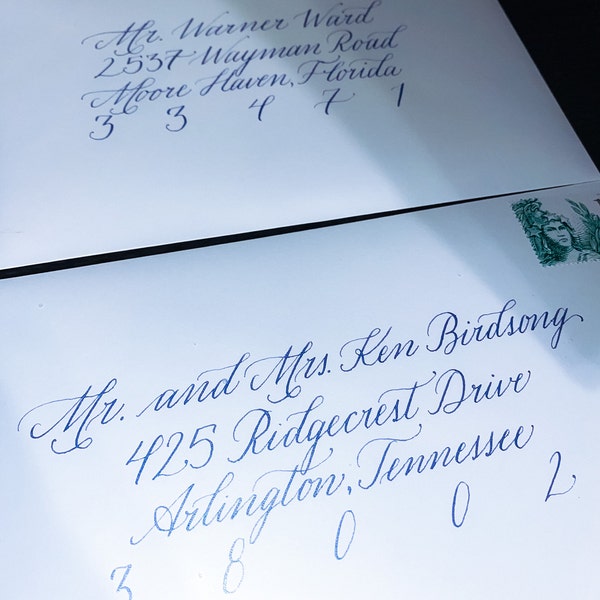 Mr. Warner Ward
2537 Wayman Road
Moore Haven, Florida
3 3 4 7 1
Mr. and Mrs. Ken Birdsong
425 Ridgecrest Drive
Arlington, Tennessee
3 8 0 0 2